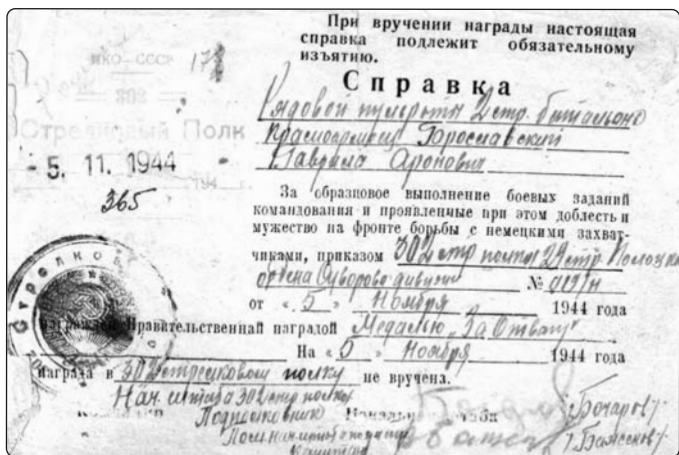 При вручении награды настоящая
справка подлежит обязательному
изъятию.
НКО–СССР 178
302
Стрелковый Полк
- 5. 11. 1944
194 г.
365
Справка
Рядовой пульроты 2 стр. батальона
Красноармеец Ярославский
Гаврила Аронович
За образцовое выполнение боевых заданий
командования и проявленные при этом доблесть и
мужество на фронте борьбы с немецкими захват-
чиками, приказом 302 стр полка 29 стр Полоцкой
ордена Суворова дивизии №
от « 5 » Ноября 1944 года
награжден Правительственной наградой Медалью „За Отвагу"
На « 5 » Ноября 1944 года
награда в 302 стрелковом полку не вручена.
Нач. штаба 302 стр полка
Подполковник /Бочаров/
Пом. нач. штаба
Капитан